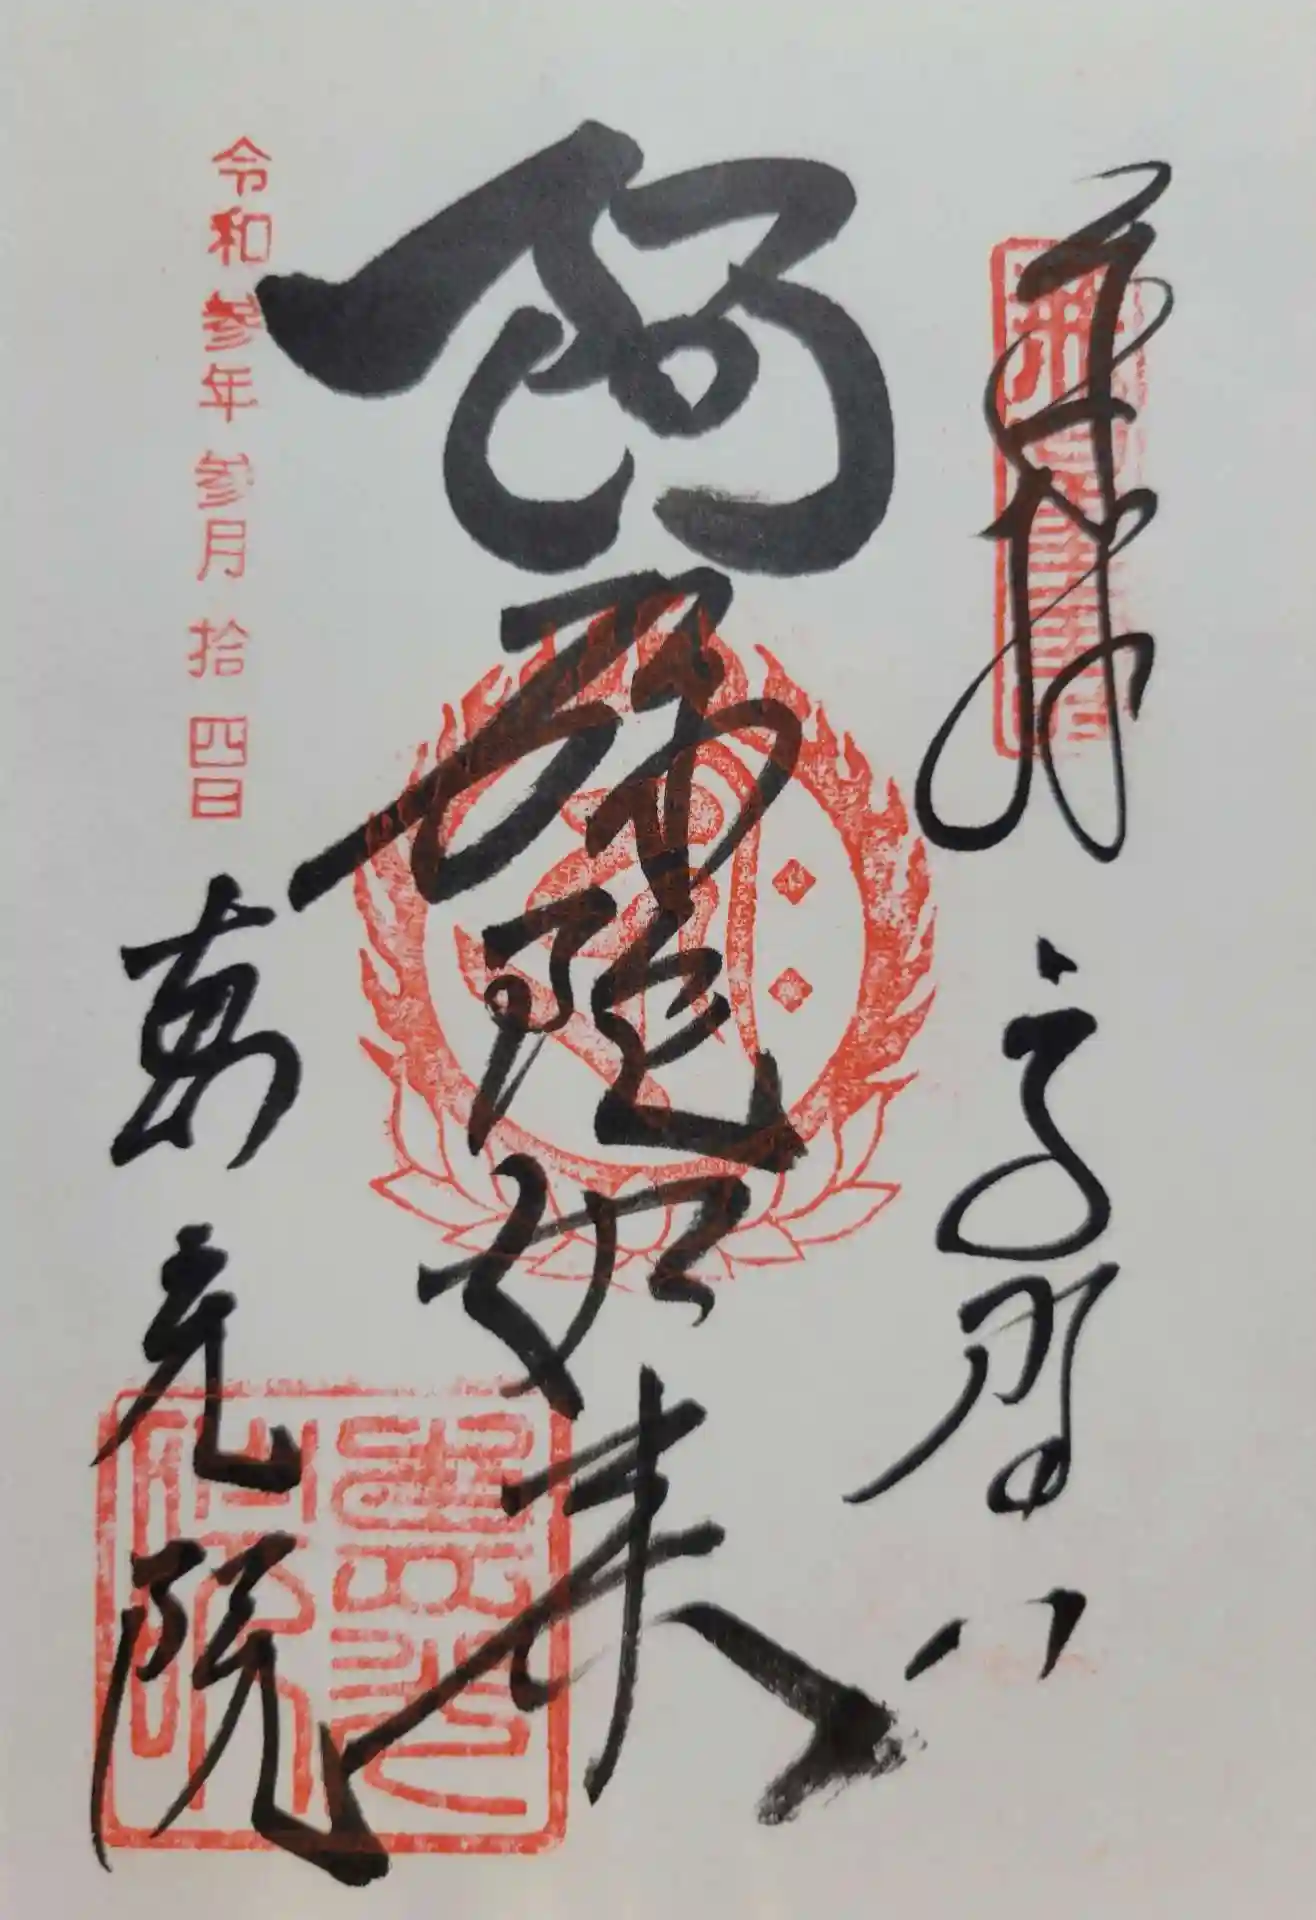 奉拝
高野山
阿弥陀如来
令和参年参月拾四日
恵光院